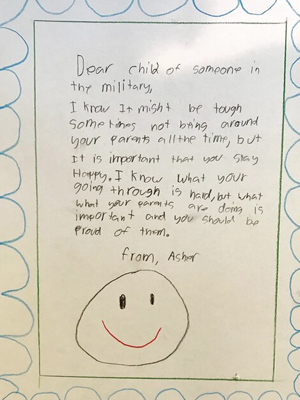 Dear child of someone in
the military,
I know It might be tough
sometimes not being around
your parents all the time, but
it is important that you stay
Happy. I know what your
going through is hard, but what
what your parents are doing is
important and you should be
proud of them.
from, Asher